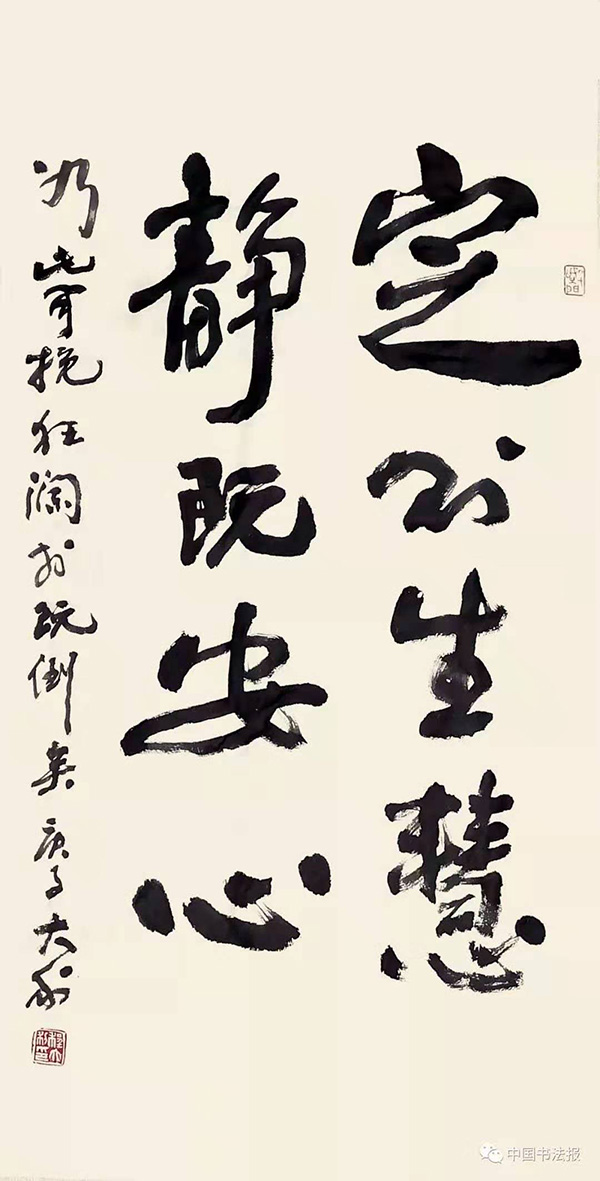 定以生慧
静既安心
为此可挽狂澜於既倒矣 庚子大利
程大利印
中国书法报